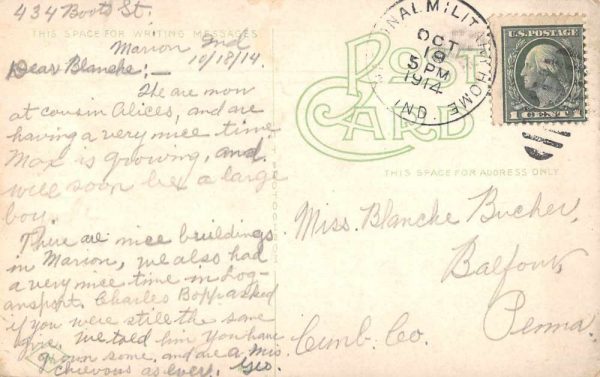 434 Boots St.
THIS SPACE FOR WRITING MESSAGES
Marion Ind
10/18/14.
Dear Blanche:-
We are now
at cousin Alices, and are
having a very nice time
Max is growing, and
will soon be a large
boy.
There are nice buildings
in Marion, we also had
a very nice time in Log-
ansport, Charles Bopp asked
if you were still the same
We told him you have
grown some, and are a mis
chievous as ever, Geo.
POST
CARD
THIS SPACE FOR ADDRESS ONLY
NAL MILITARY HOME
OCT
18
5 PM
1914
IND.
U.S. POSTAGE
1 CENT 1
Miss. Blanche Bucher,
Balfour,
Cumb. Co. Penna.